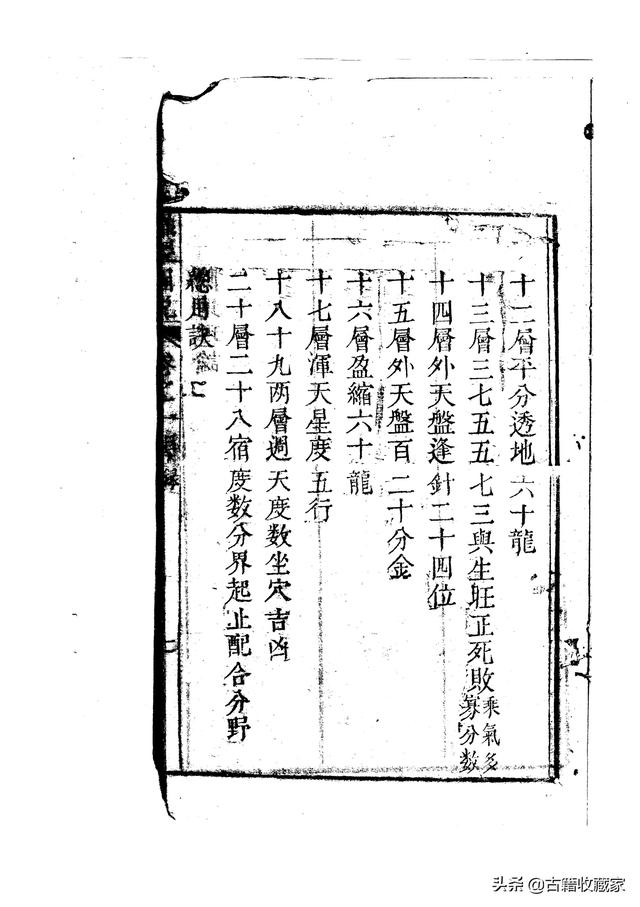 十二層平分透地六十龍
十三層三七五五七三與生旺正死敗乘氣多寡分数
十四層外天盤逢針二十四位
十五層外天盤百二十分金
十六層盈縮六十龍
十七層渾天星度五行
十八十九两層週天度数坐穴吉凶
二十層二十八宿度数分界起止配合分野
總用訣
卷之一
头条 @古籍收藏家